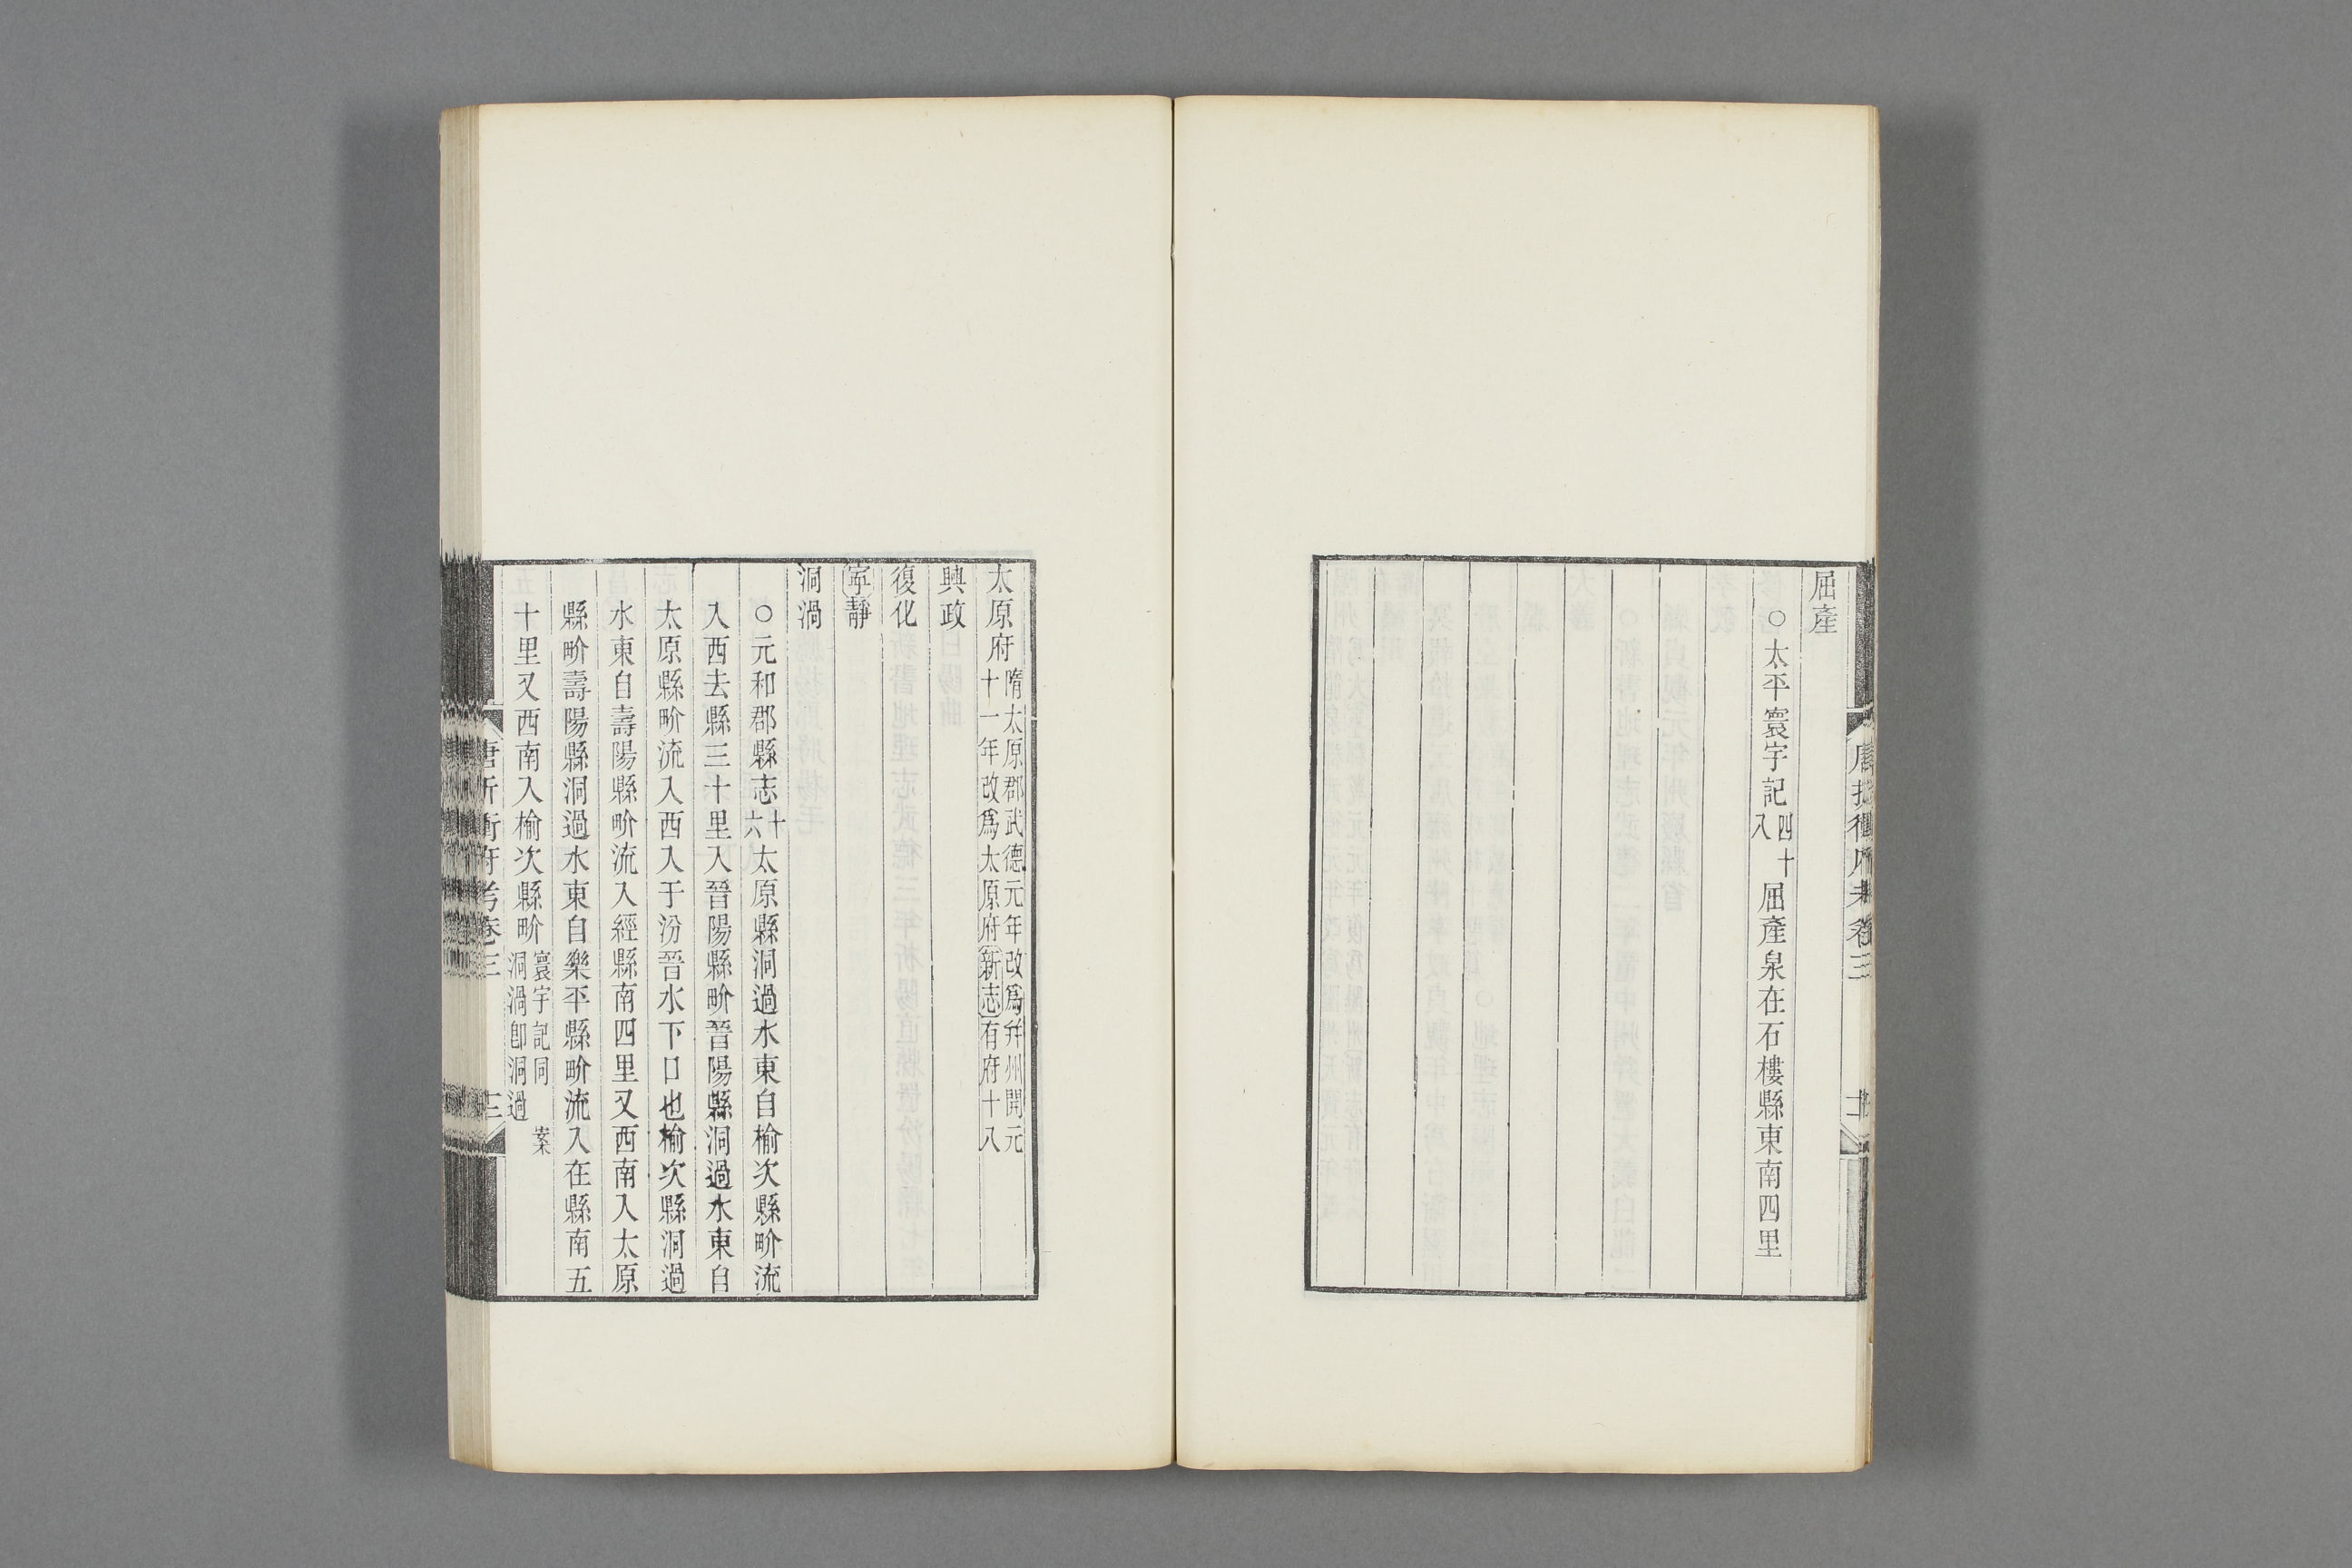 屈產
○太平寰宇記四十八屈產泉在石樓縣東南四里
太原府隋太原郡武德元年改爲幷州開元十一年改爲太原府新志有府十八
興政
復化
寧靜
洞渦
○元和郡縣志十六太原縣洞過水東自榆次縣畍流
入西去縣三十里入晉陽縣畍晉陽縣洞過水東自
太原縣畍流入西入于汾晉水下口也榆次縣洞過
水東自壽陽縣畍流入經縣南四里又西南入太原
縣畍壽陽縣洞過水東自樂平縣畍流入在縣南五
十里又西南入榆次縣畍寰宇記同 案洞渦卽洞過
唐折衝府考卷三
三